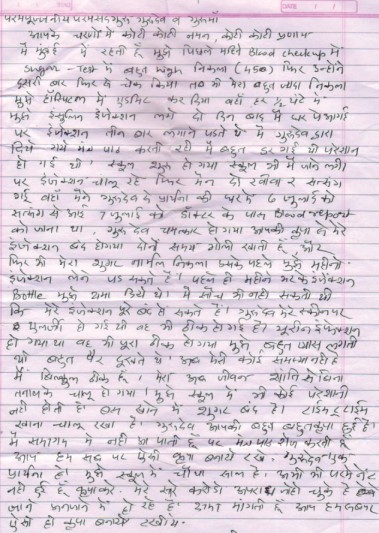 परमपूजनीय परमसद्गुरु गुरुदेव व गुरुमाँ
आपके चरणों में कोटी कोटी नमन, कोटी कोटी प्रणाम
में रहती हूँ मुझे पिछले महिने Blood checkup में
Sugar - Test में बहुत निकला (450) फिर उन्होने
दुसरी बार फिर से चेक किया। तब भी मेरा बहुत ज्यादा निकला
मुझे हॉस्पिटल में एडमिट कर दिया वहाँ हर ½ घंटे में
मुझे इंसुलिन इंजेक्शन लगे दो दिन बाद में घर पे आगई
पर इंजेक्शन तीन बार लगाने पडते थे में गुरुदेव द्वारा
दिये गये मंत्र पाठ करती रही में बहुत डर गई थी परेशान
हो गई थी। स्कूल शुरू हो गया स्कूल भी में जाने लगी।
पर इंजेक्शन चालू रहे फिर मैने दो रवीवार सत्संग
गई वहाँ मैने गुरुदेव से प्रार्थना की 6 जुलाई को
सत्संग से आई 7 जुलाई को डॉक्टर के पास Blood report
को जाना था, गुरुदेव चमत्कार हो गया आपकी कृपा से मेरे
इंजेक्शन बंद हो गया दोनों समय गोली खाती हूँ और
फिर भी मेरा शुगर नार्मल निकला इसके पहले मुझे
इंजेक्शन लेने पड सकते हैं। पहले ही महीने भर के इंजेक्शन
Bottle मुझे दिये थे। में सोच भी नही सकती थी
कि मेरे इंजेक्शन पुरे बंद हो सकते हैं। गुरुदेव मेरे स्कीन पर
हो गई थी वह भी ठीक हो गई है।
हो गया था वह भी पूरा ठीक हो गया मुझे बहुत प्यास लगती
थी बहुत पैर दुखते थे। अब मेरी कोई समस्या नहीं है
में बिल्कुल ठीक हूँ। मेरा अब जीवन शांति से बिना
तनाव के चालू हो गया। मुझे स्कूल में भी कोई परेशानी
नहीं होती है। बस खाने में शुगर बंद है। टाईम टू टाईम
खाना चालू रखा है। गुरुदेव आपकी बहुत बहुत कृपा हुई है।
में समागम में नहीं आ पाती हूँ पर मंत्र पाठ रोज करती हूँ
आप हम सब पर ऐसी कृपा बनाये रखे। गुरुदेव एक
प्रार्थना है। मुझे स्कूल में चौथा साल है। अभी भी परमनेंट
नहीं हुई हूँ कृपा कर। मेरे से कोई नहीं चुके हो
जाने अनजाने में हो रहे हैं। क्षमा मांगती हूँ आप हम सबपर
ऐसी ही कृपा बनाये रखिये।